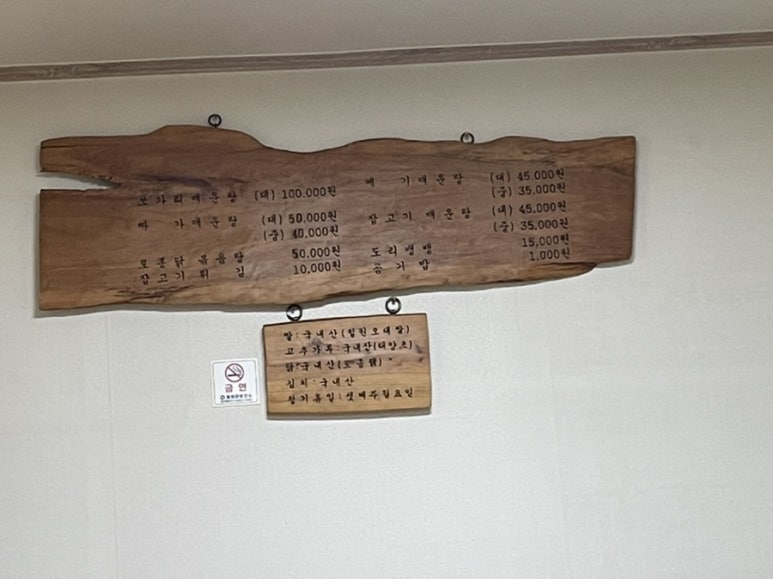 쏘가리매운탕 (대) 100,000원
빠 가매운탕 (대) 50,000원
(중) 40,000원
토종닭 볶음탕 50,000원
잡고기튀 김 10,000원
메 기매운탕 (대) 45,000원
(중) 35,000원
잡고기 매운탕 (대) 45,000원
(중) 35,000원
도리뱅뱅 15,000원
공기밥 1,000원
쌀:국내산(철원오대쌀)
고추가루:국내산(태양초)
닭:국내산(토종닭)
김치:국내산
정기휴일:셋째주월요일
금연